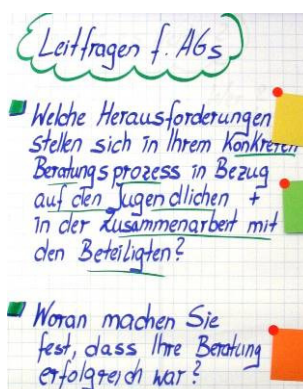 Leitfragen f. AGs
Welche Herausforderungen
stellen sich in Ihrem konkreten
Beratungsprozess in Bezug
auf den Jugendlichen +
in der Zusammenarbeit mit
den Beteiligten?
Woran machen Sie
fest, dass Ihre Beratung
erfolgreich war?